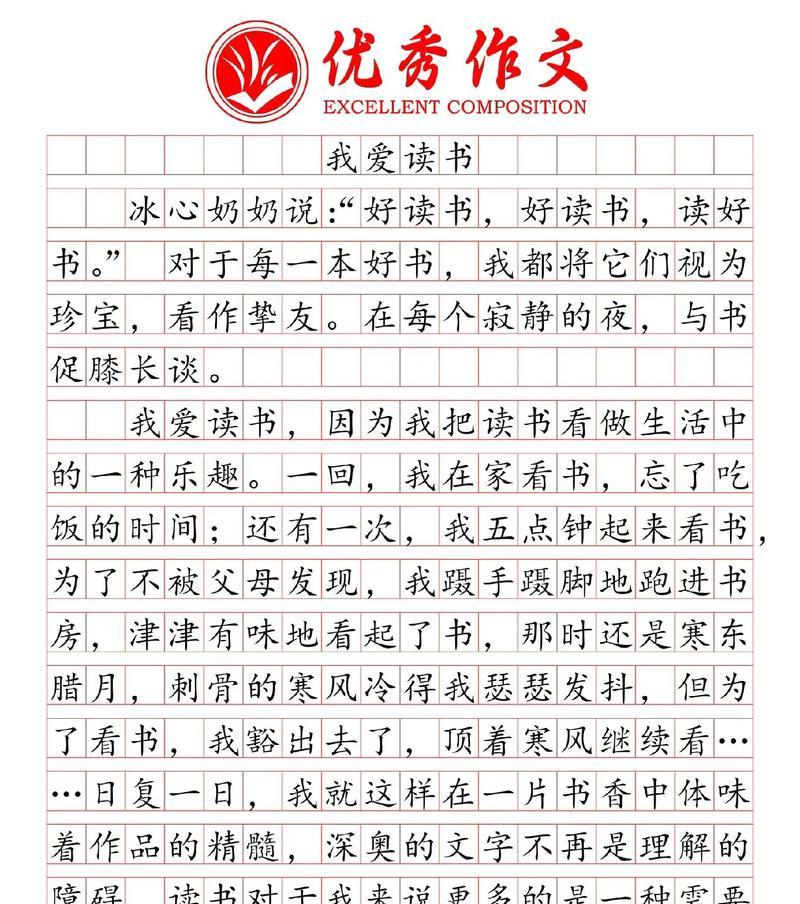 优秀作文
EXCELLENT COMPOSITION
我爱读书
冰心奶奶说：“好读书，好读书，读好
书。” 对于每一本好书，我都将它们视为
珍宝，看作挚友。在每个寂静的夜，与书
促膝长谈。
我爱读书，因为我把读书看做生活中
的一种乐趣。一回，我在家看书，忘了吃
饭的时间；还有一次，我五点钟起来看书，
为了不被父母发现，我蹑手蹑脚地跑进书
房，津津有味地看起了书，那时还是寒东
腊月，刺骨的寒风冷得我瑟瑟发抖，但为
了看书，我豁出去了，顶着寒风继续看…
…日复一日，我就这样在一片书香中体味
着作品的精髓，深奥的文字不再是理解的
障碍，读书对于我来说更多的是一种需要